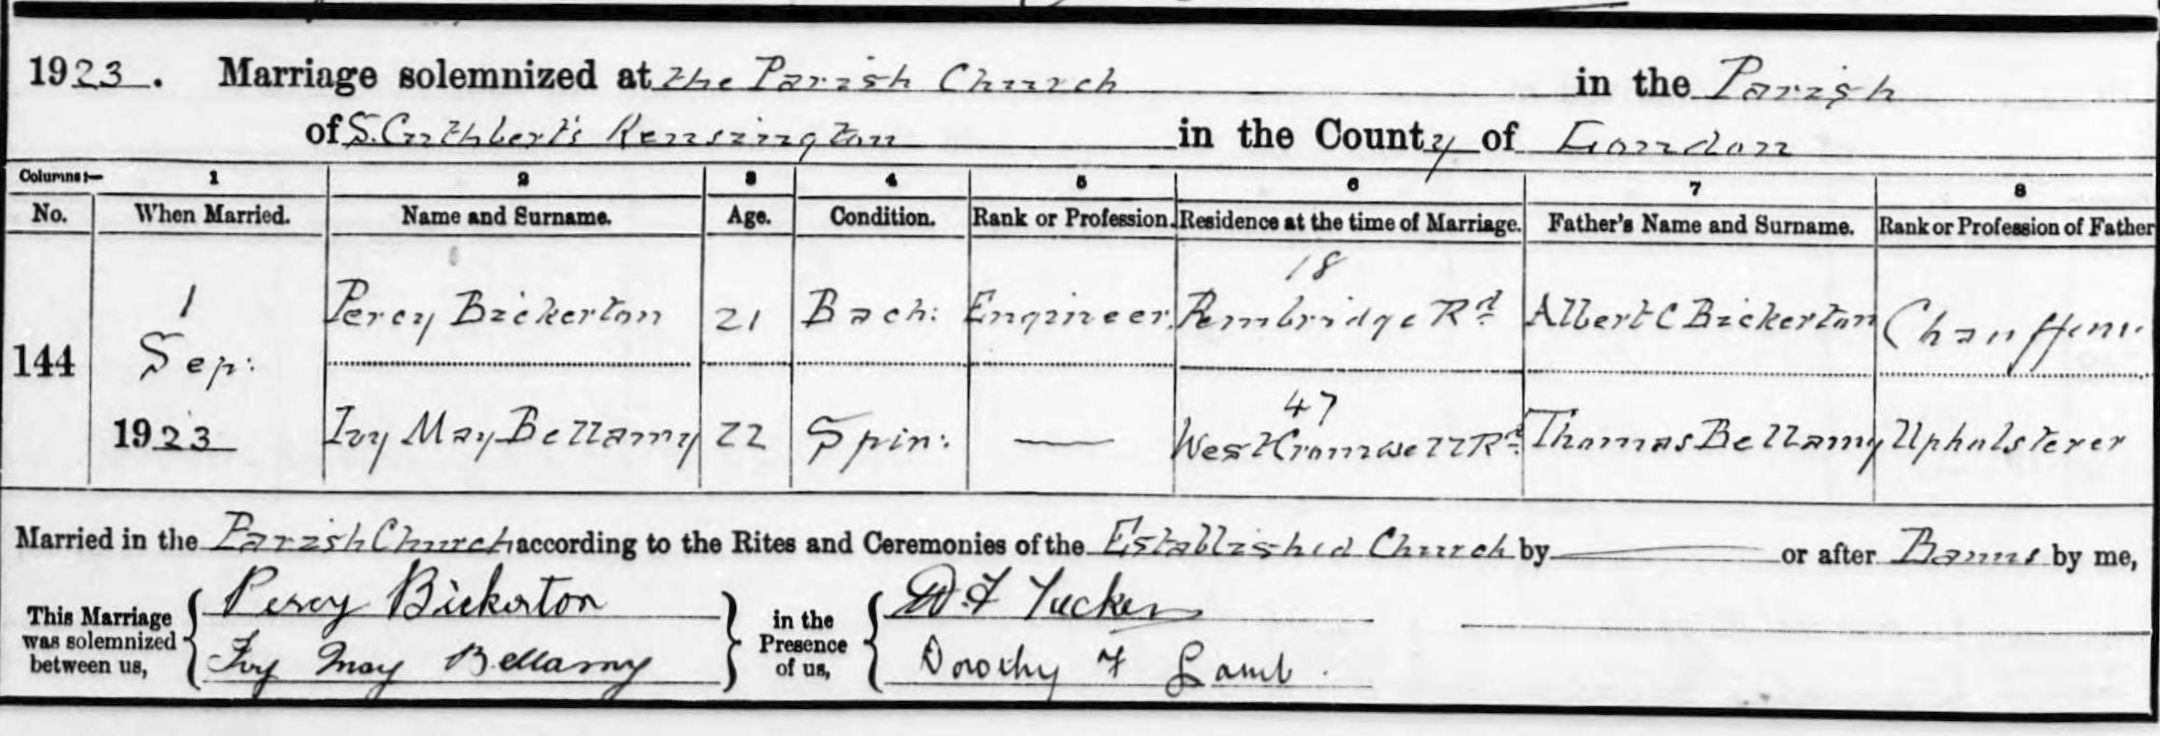 1923. Marriage solemnized at the Parish Church in the Parish
of S. Cuthbert's Kensington in the County of London
Columns:— 1 2 3 4 5 6 7 8
No. When Married. Name and Surname. Age. Condition. Rank or Profession. Residence at the time of Marriage. Father's Name and Surname. Rank or Profession of Father
18
1 Percy Bickerton 21 Bach: Engineer. Pembridge Rd Albert C Bickerton Chauffeur
144 Sep:
47
1923 Ivy May Bellamy 22 Spin: — West Cromwell Rd Thomas Bellamy Upholsterer
Married in the Parish Church according to the Rites and Ceremonies of the Established Church by — or after Banns by me,
This Marriage was solemnized between us, { Percy Bickerton } in the Presence of us, { W. F Tucker
Ivy May Bellamy Dorothy F Lamb.